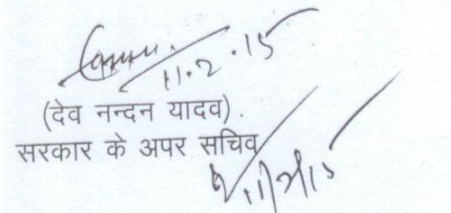 11.2.15
(देव नन्दन यादव).
सरकार के अपर सचिव
11/2/15